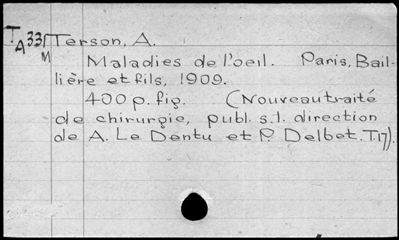 TA331M Terson, A.
Maladies de l'oeil. Paris, Bail-
lière et fils, 1909.
400 p. fig. (Nouveau traité
de chirurgie, publ. s.l. direction
de A. Le Dentu et P. Delbet. T.17).